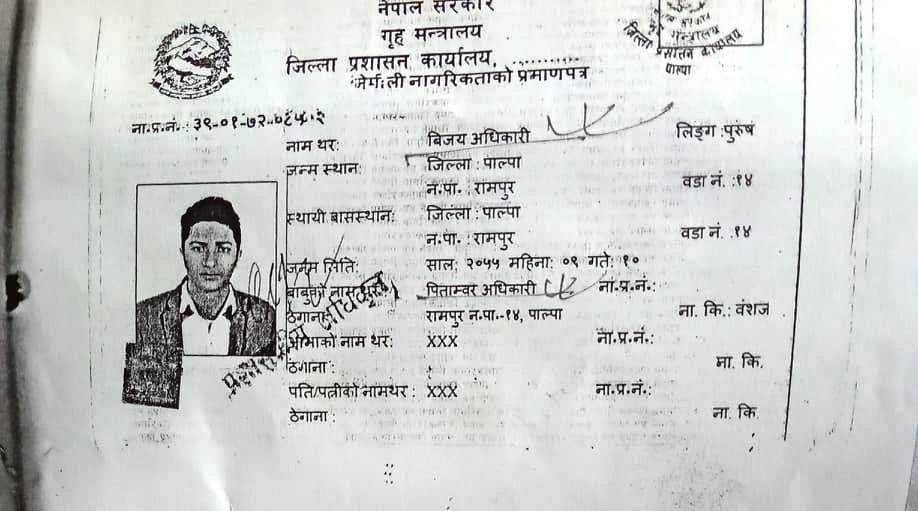 नेपाल सरकार
गृह मन्त्रालय
जिल्ला प्रशासन कार्यालय, ..........
नेपाली नागरिकताको प्रमाणपत्र
जिल्ला प्रशासन कार्यालय
पाल्पा
ना.प्र.नं.:
नाम थर: बिजय अधिकारी लिङ्ग :पुरुष
जन्म स्थान: जिल्ला : पाल्पा
न.पा. : रामपुर वडा नं. :१४
स्थायी बासस्थान: जिल्ला : पाल्पा
न.पा. : रामपुर वडा नं. :१४
जन्म मिति: साल: २०५५ महिना: ०९ गते: १०
बाबुको नाम थर: पिताम्वर अधिकारी ना.प्र.नं.:
ठेगाना: रामपुर न.पा.-१४, पाल्पा ना. कि.: वंशज
आमाको नाम थर: XXX ना.प्र.नं.:
ठेगाना : ना. कि.
पति/पत्नीको नामथर : XXX ना.प्र.नं.:
ठेगाना : ना. कि.